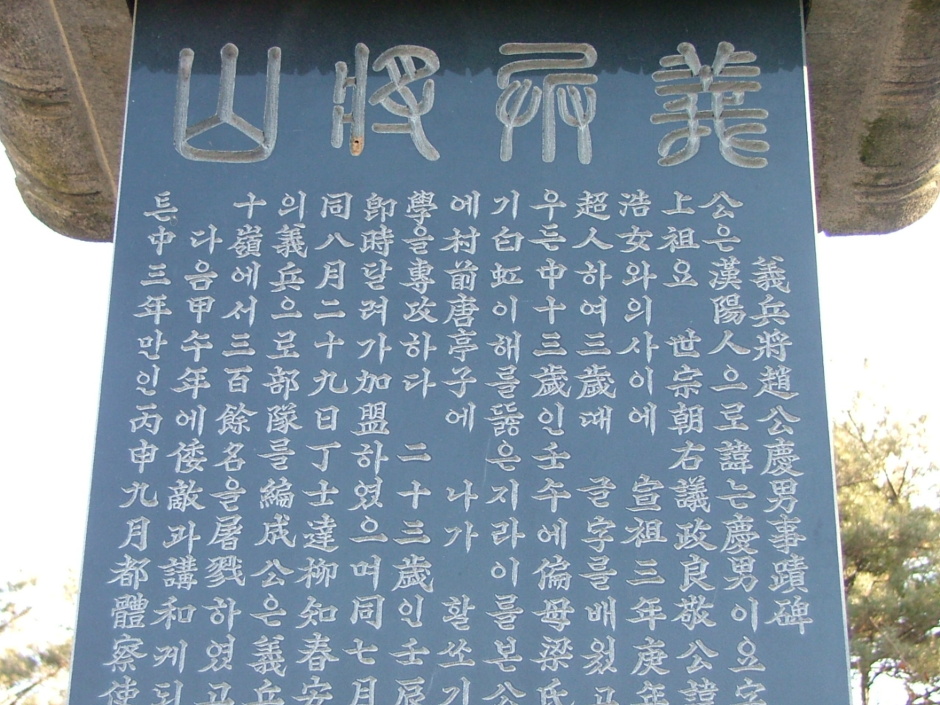 義兵將山
義兵將趙公慶男事蹟碑
公은漢陽人으로諱는慶男이요字
上祖요 世宗朝右議政良敬公諱
浩女와의사이에 宣祖三年庚年
超人하여三歲때 글字를배웠고
우든中十三歲인壬午에偏母梁氏
기白虹이해를뚫은지라이를본公
에村前唐亭子에 나가 활쏘기
學을專攻하다 二十三歲인壬辰
卽時달려가加盟하였으며同七月
同八月二十九日丁士達柳知春安
의義兵으로部隊를編成公은義兵
十嶺에서三百餘名을屠戮하였고
다음甲午年에倭敵과講和케되
든中三年만인丙申九月都體察使